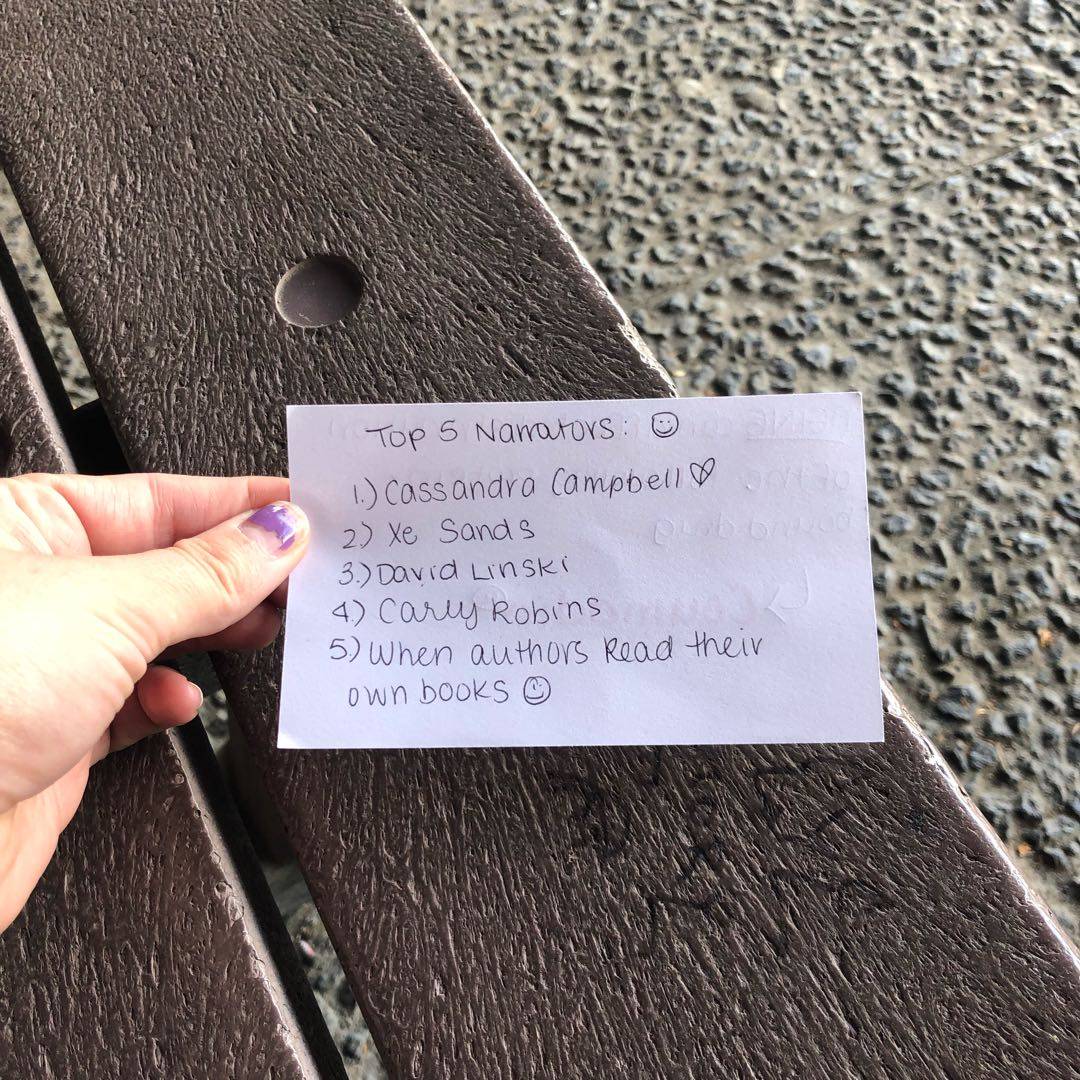 Top 5 Narrators: ☺
1.) Cassandra Campbell ♡
2.) Xe Sands
3.) David Linski
4.) Carly Robins
5.) When authors Read their
own books ☺